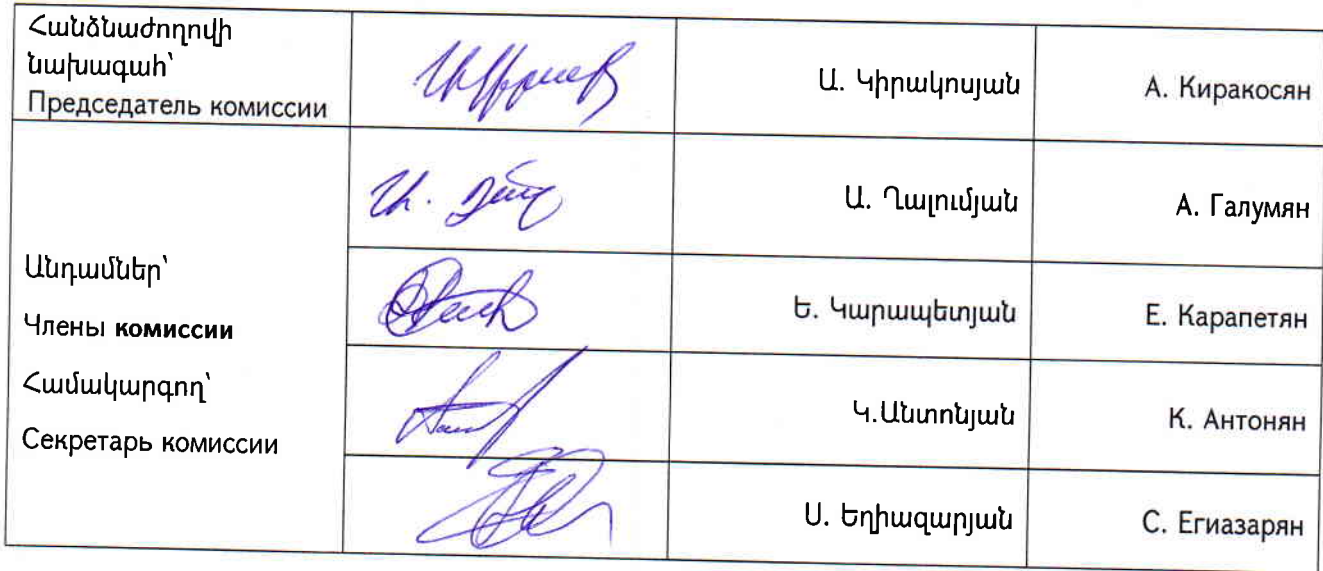 Հանձնաժողովի
նախագահ՝
Председатель комиссии
Ա. Կիրակոսյան
А. Киракосян
Ա. Ղալումյան
А. Галумян
Անդամներ՝
Члены комиссии
Համակարգող՝
Секретарь комиссии
Ե. Կարապետյան
Е. Карапетян
Կ.Անտոնյան
К. Антонян
Ս. Եղիազարյան
С. Егиазарян